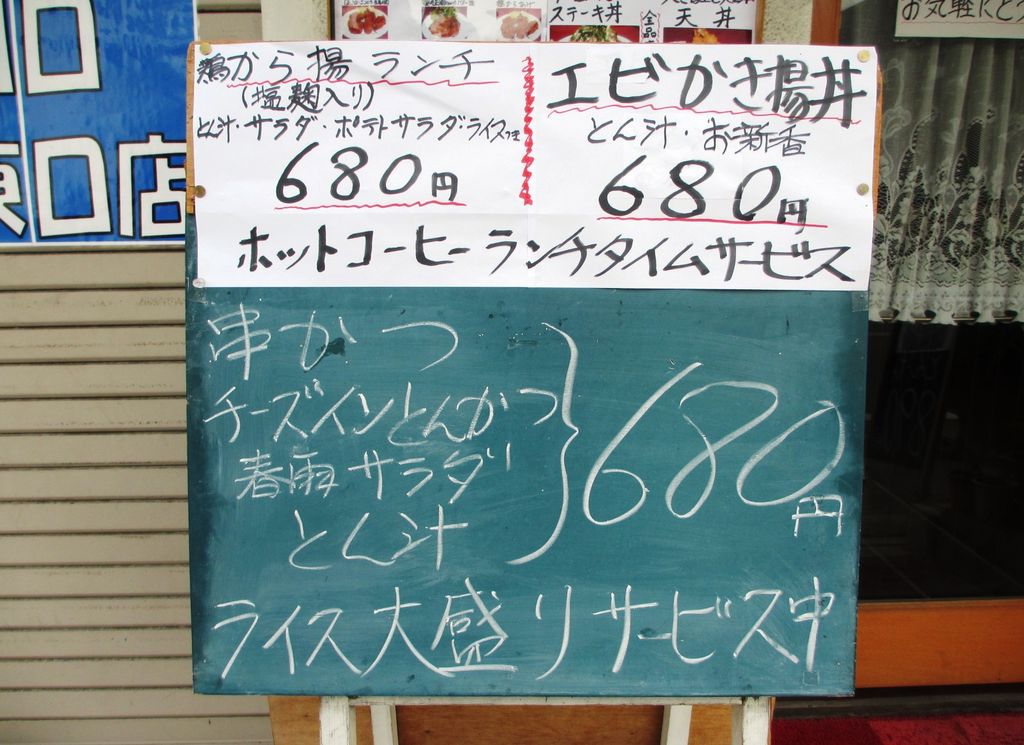 ステーキ丼
全品
天丼
お気軽にど
口
東口店
鶏から揚ランチ
(塩麹入り)
とん汁・サラダ・ポテトサラダ・ライスつき
680円
エビかき揚丼
とん汁・お新香
680円
ホットコーヒーランチタイムサービス
串かつ
チーズインとんかつ
春雨サラダ
とん汁
680円
ライス大盛リサービス中